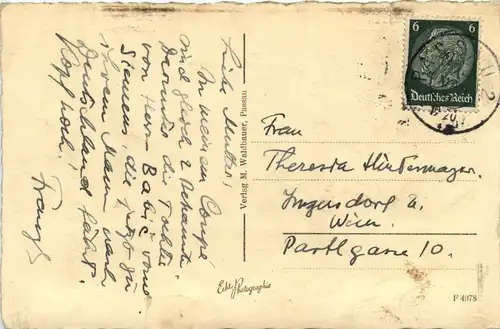 Liebe Mutter!
In meinem Coupé
sind gleich 2 Bekannte.
Darunter die Tochter
von Herrn Babič vom
Siemens, die jetzt zu
ihrem Mann nach
Deutschland fährt.
Kopf hoch!
Franz
Verlag M. Waldbauer, Passau
6 6
Deutsches Reich
Frau
Theresia Hintermayer
Inzersdorf b.
Wien
Partlgasse 10.
Echte Photographie
F 4978